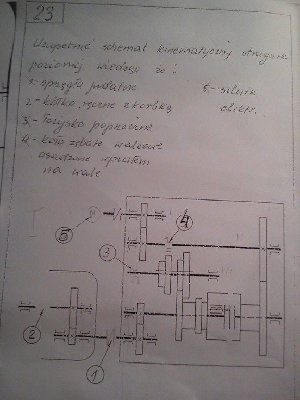 23
Uzupełnić schemat kinematyczny strugarki
poziomej wiedząc że:
1- sprzęgło podatne 5- silnik
2- kółko ręczne z korbką elektr.
3- łożysko poprzeczne
4- koło zębate walcowe
osadzone wpustem
na wale
I
M
4
5
3
2
1